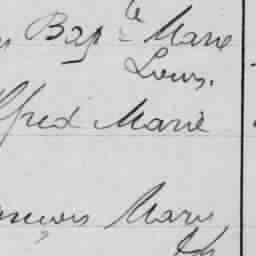 Bapte Marie
Louis.
Alfred Marie
François Marie